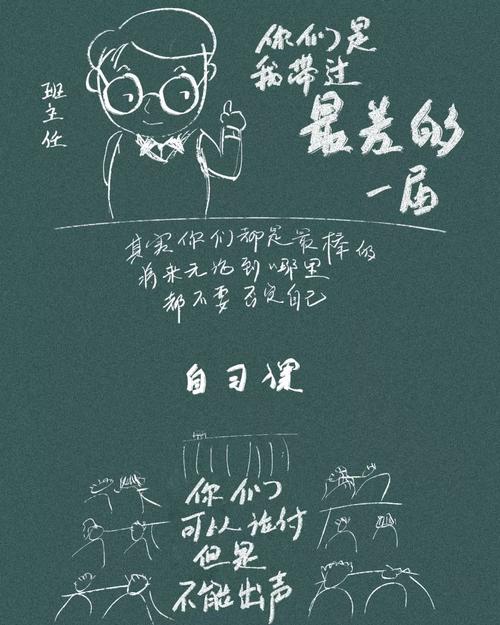 班主任
你们是
我带过
最差的
一届
其实你们都是最棒的
将来无论到哪里
都不要否定自己
自习课
你们
可以
但是
不能出声